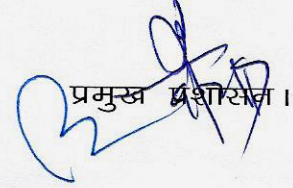 प्रमुख प्रशासन।